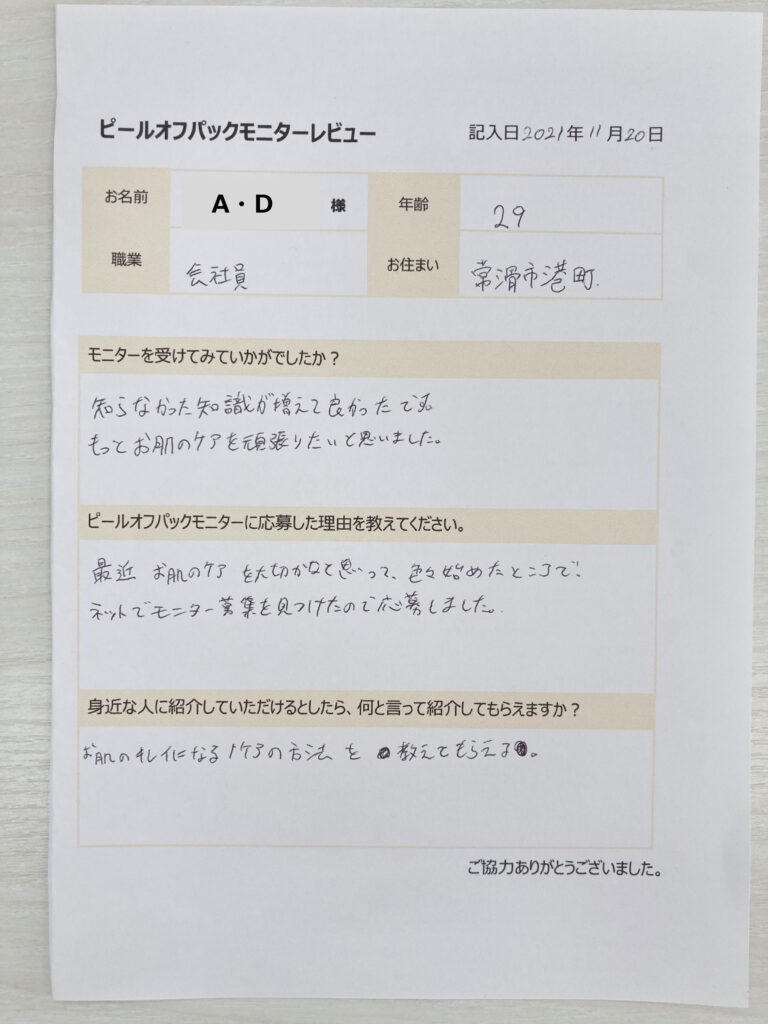 ピールオフパックモニターレビュー
記入日2021年11月20日
お名前 A・D 様 年齢 29
職業 会社員 お住まい 常滑市港町.
モニターを受けてみていかがでしたか？
知らなかった知識が増えて良かったです。
もっとお肌のケアを頑張りたいと思いました。
ピールオフパックモニターに応募した理由を教えてください。
最近 お肌のケア を大切かなと思って、色々始めたところで、
ネットでモニター募集を見つけたので応募しました。
身近な人に紹介していただけるとしたら、何と言って紹介してもらえますか？
お肌のキレイになる ケアの方法 を 教えてもらえる。
ご協力ありがとうございました。